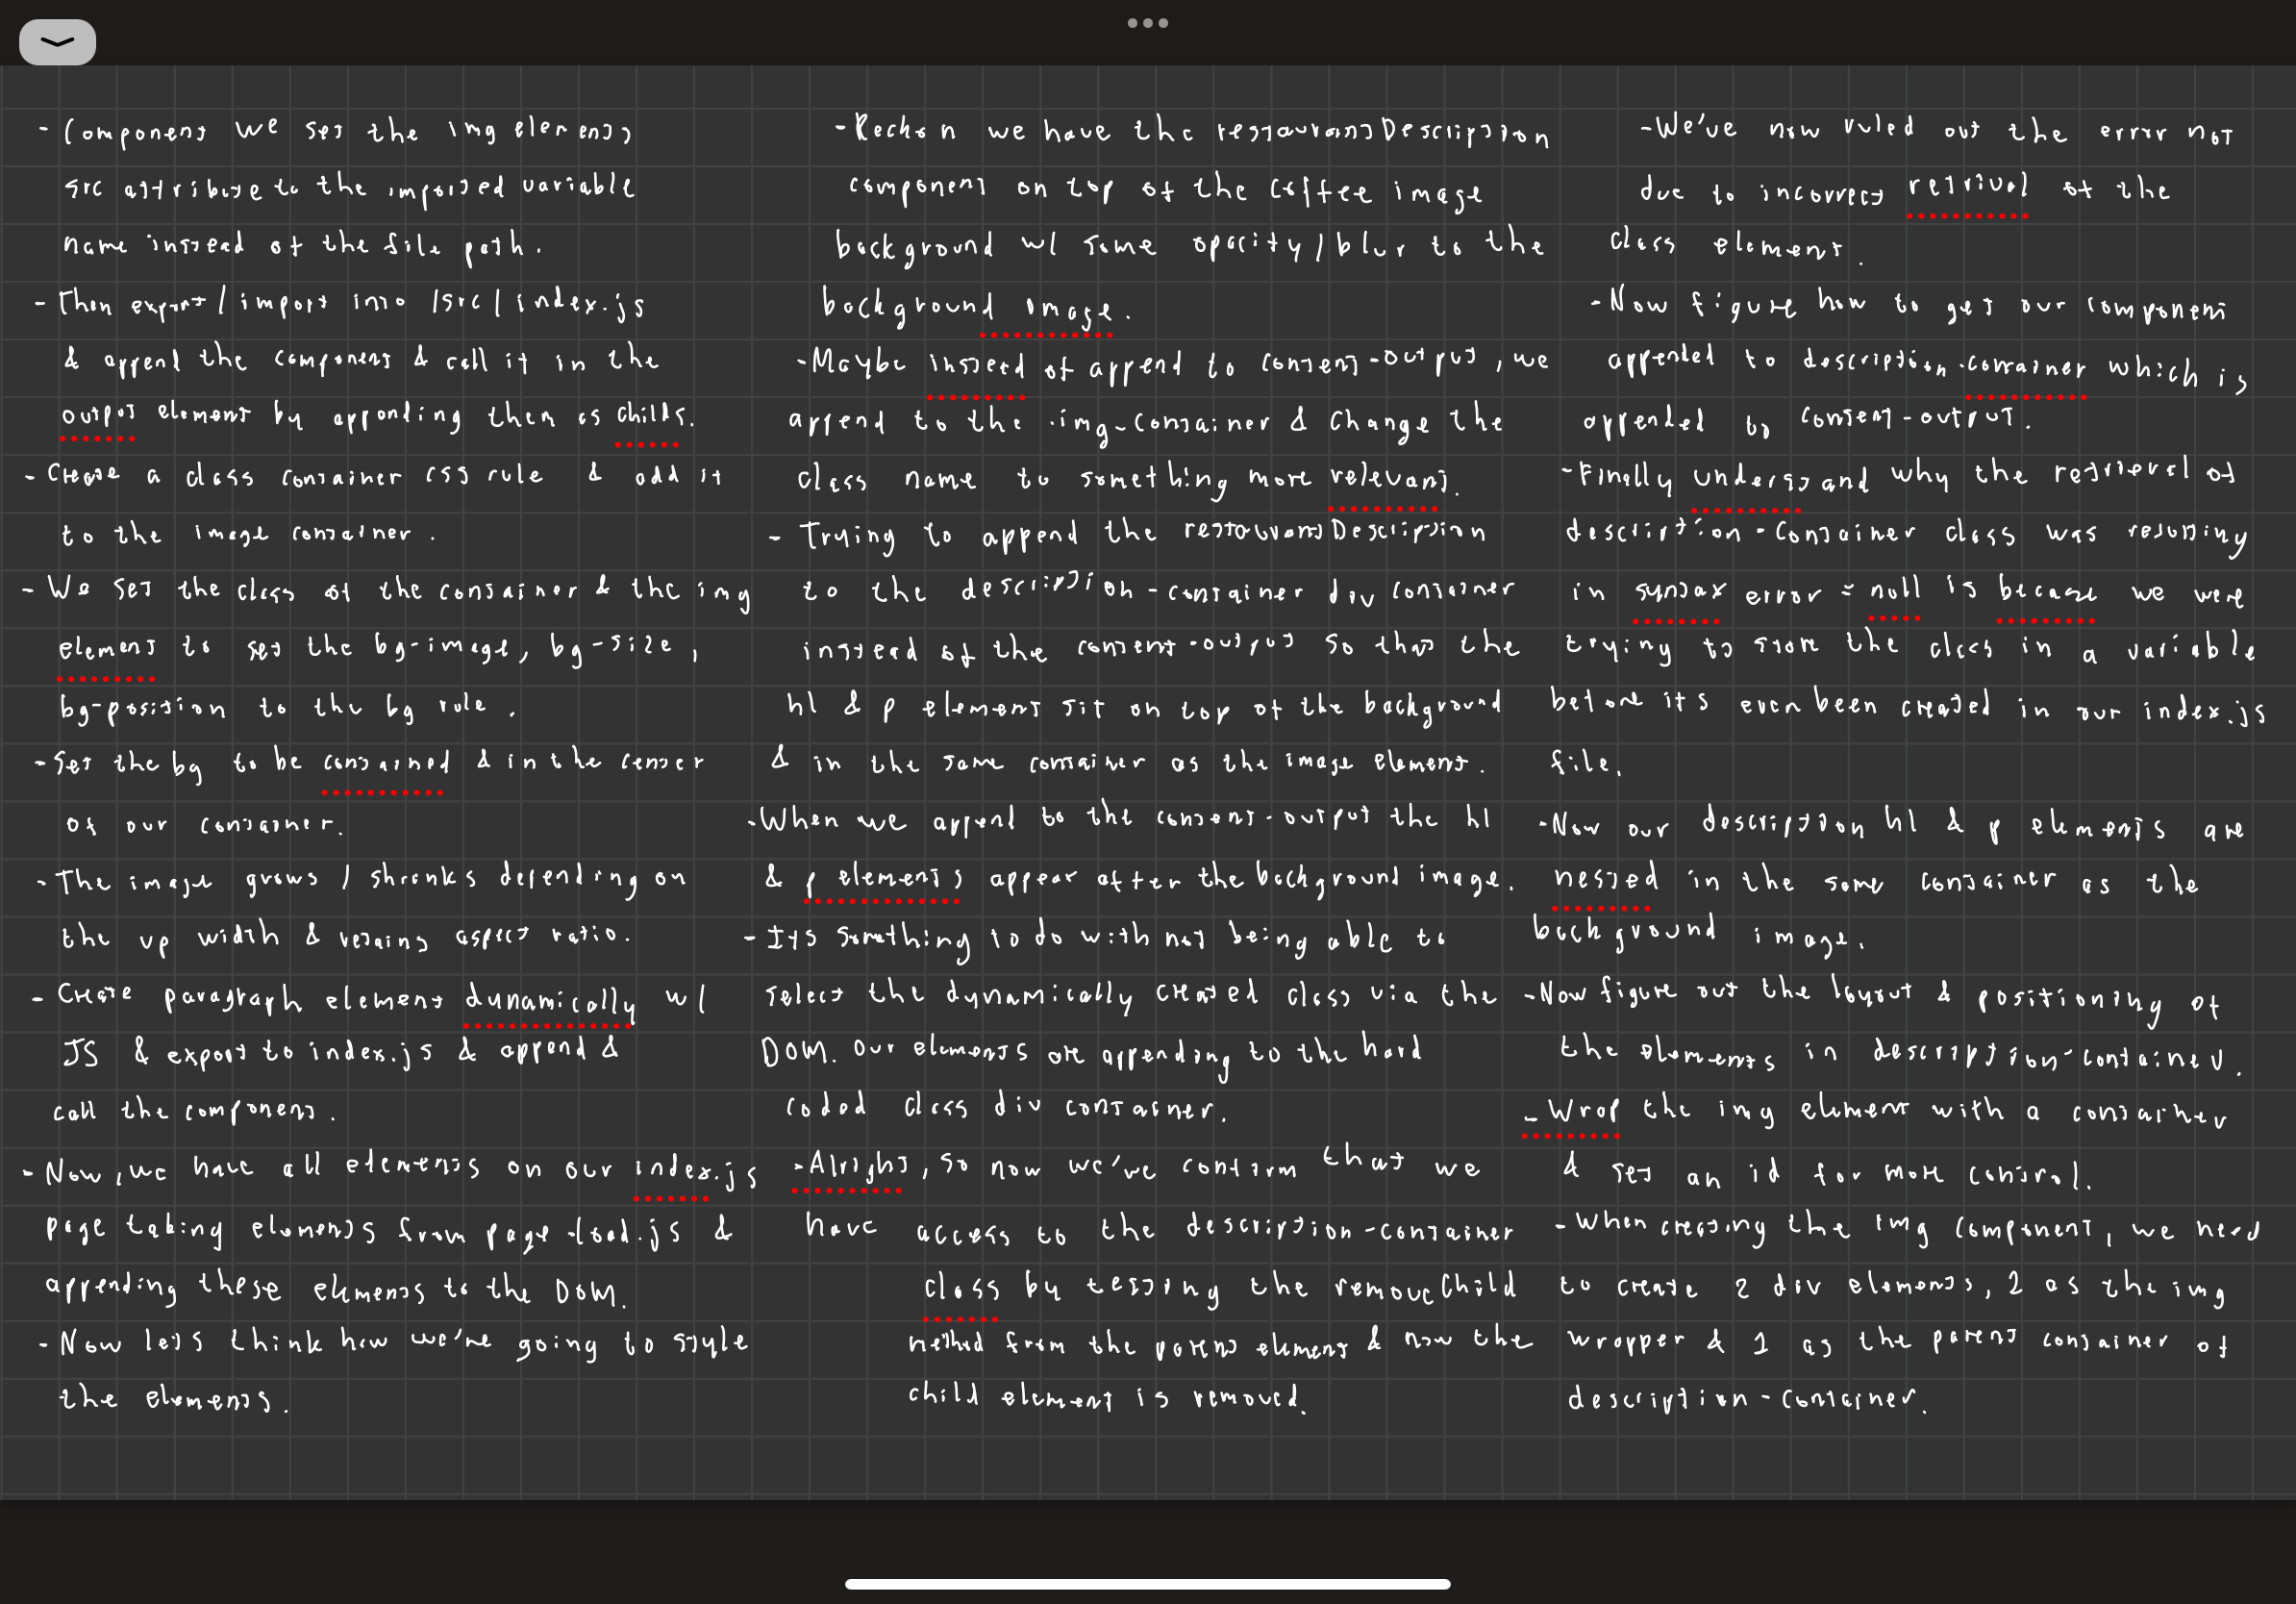 - Component we set the img elements
src attribute to the imported variable
name instead of the file path.
- Then export / import into /src/index.js
& append the component & call it in the
output element by appending them as childs.
- Create a class container css rule & add it
to the image container.
- We set the class of the container & the img
element to set the bg-image, bg-size,
bg-position to the bg rule.
- Set the bg to be contained & in the center
of our container.
- The image grows / shrinks depending on
the vp width & retains aspect ratio.
- Create paragraph element dynamically w/
JS & export to index.js & append &
call the component.
- Now, we have all elements on our index.js
page taking elements from page-load.js &
appending these elements to the DOM.
- Now lets think how we're going to style
the elements.
- Reckon we have the restaurantDescription
component on top of the coffee image
background w/ some opacity / blur to the
background image.
- Maybe instead of append to content-output, we
append to the .img-container & change the
class name to something more relevant.
- Trying to append the restaurantDescription
to the description-container div container
instead of the content-output so that the
h1 & p element sit on top of the background
& in the same container as the image element.
- When we append to the content-output the h1
& p elements appear after the background image.
- Its something to do with not being able to
select the dynamically created class via the
DOM. Our elements are appending to the hard
coded class div container.
- Alright, so now we've confirm that we
have access to the description-container
class by testing the removeChild
method from the parent element & now the
child element is removed.
- We've now ruled out the error not
due to incorrect retrival of the
class element.
- Now figure how to get our component
appended to description-container which is
appended to content-output.
- Finally understand why the retrieval of
description-container class was resulting
in syntax error = null is because we were
trying to store the class in a variable
before its even been created in our index.js
file.
- Now our description h1 & p elements are
nested in the same container as the
background image.
- Now figure out the layout & positioning of
the elements in description-container.
- Wrap the img element with a container
& set an id for more control.
- When creating the img component, we need
to create 2 div elements, 2 as the img
wrapper & 1 as the parent container of
description-container.